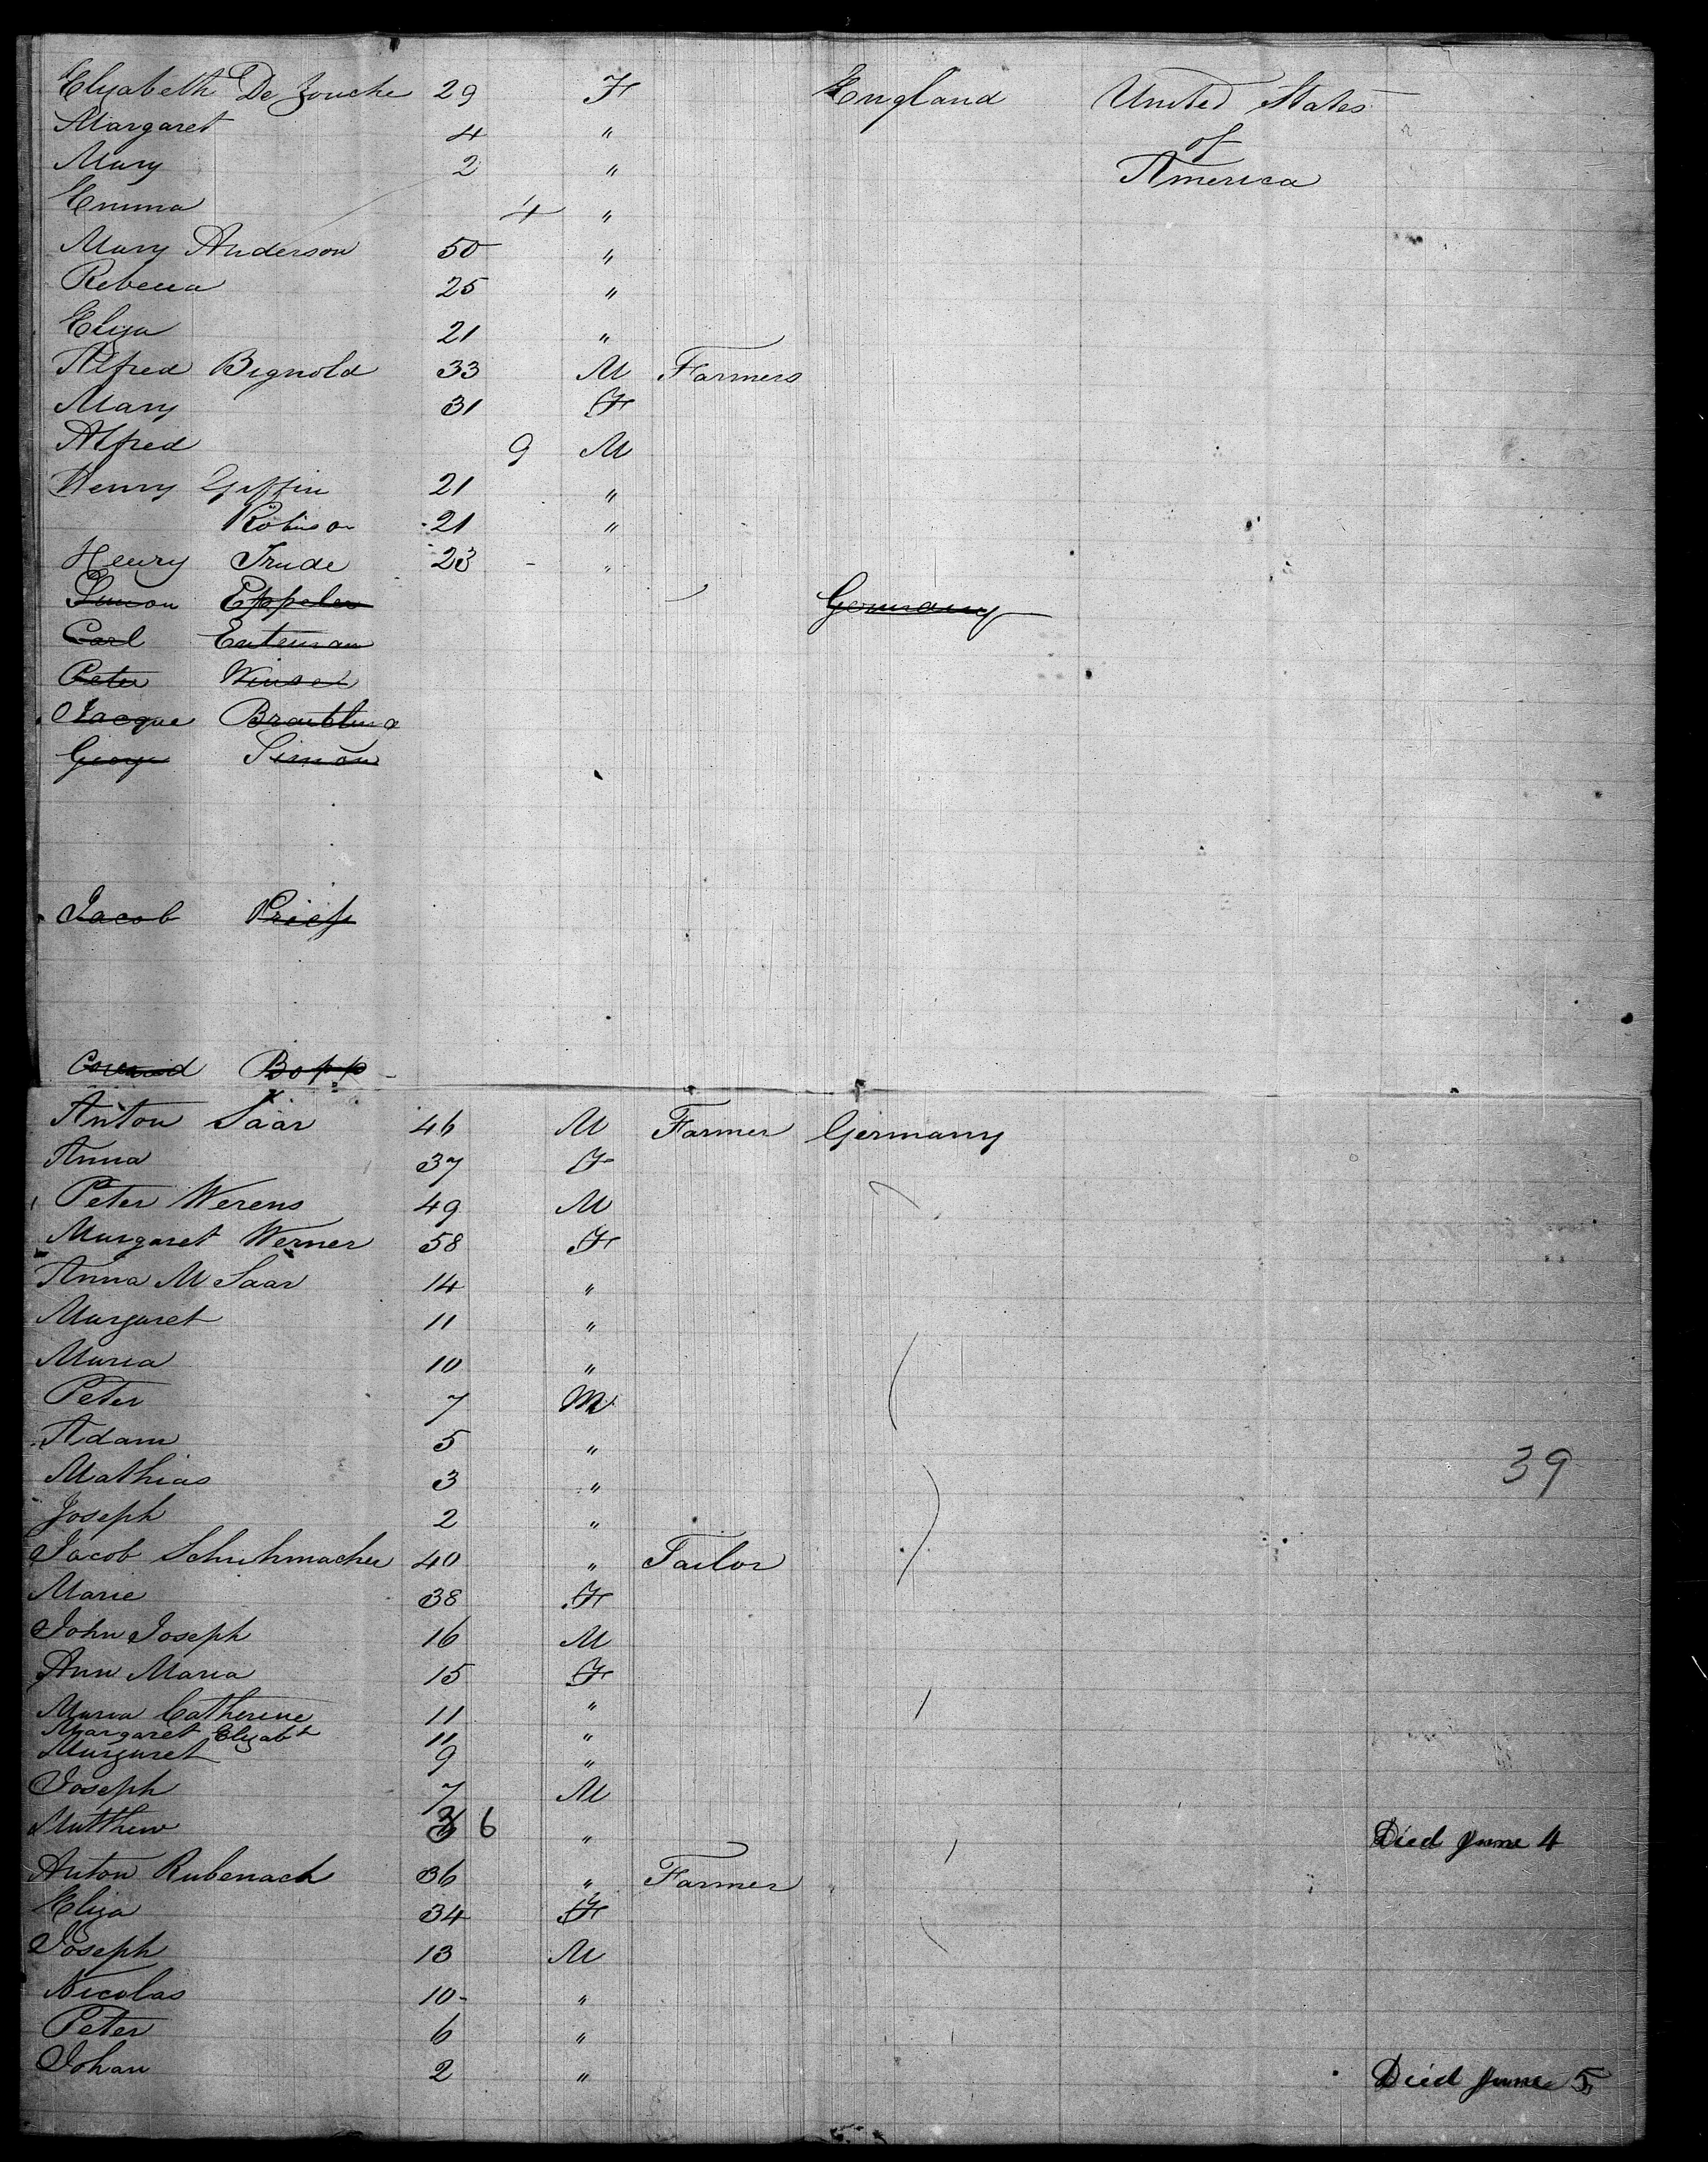 Elizabeth De Zouche 29 F England United States
Margaret 4 " of
Mary 2 " America
Emma 4 "
Mary Anderson 50 "
Rebecca 25 "
Eliza 21 "
Alfred Bignold 33 M Farmers
Mary 31 F
Alfred 9 M
Henry 21 "
Robinson 21 "
Henry Trude 23 "
Simon Eppeler Germany
Carl Enteman
Peter
Jacque
George Simon
Jacob
Conrad Bopp
Anton Saar 46 M Farmer Germany
Anna 37 F
Peter Werens 49 M
Margaret Werner 58 F
Anna M Saar 14 "
Margaret 11 "
Maria 10 "
Peter 7 M
Adam 5 "
Mathias 3 " 39
Joseph 2 "
Jacob Schuhmacher 40 " Tailor
Marie 38 F
John Joseph 16 M
Ann Maria 15 F
Maria Catherine 11 "
Margaret Elizabt 11 "
Margaret 9 "
Joseph 7 M
Matthew 6 " Died June 4
Anton Rubenach 36 " Farmer
Eliza 34 F
Joseph 13 M
Nicolas 10 "
Peter 6 "
Johan 2 " Died June 5